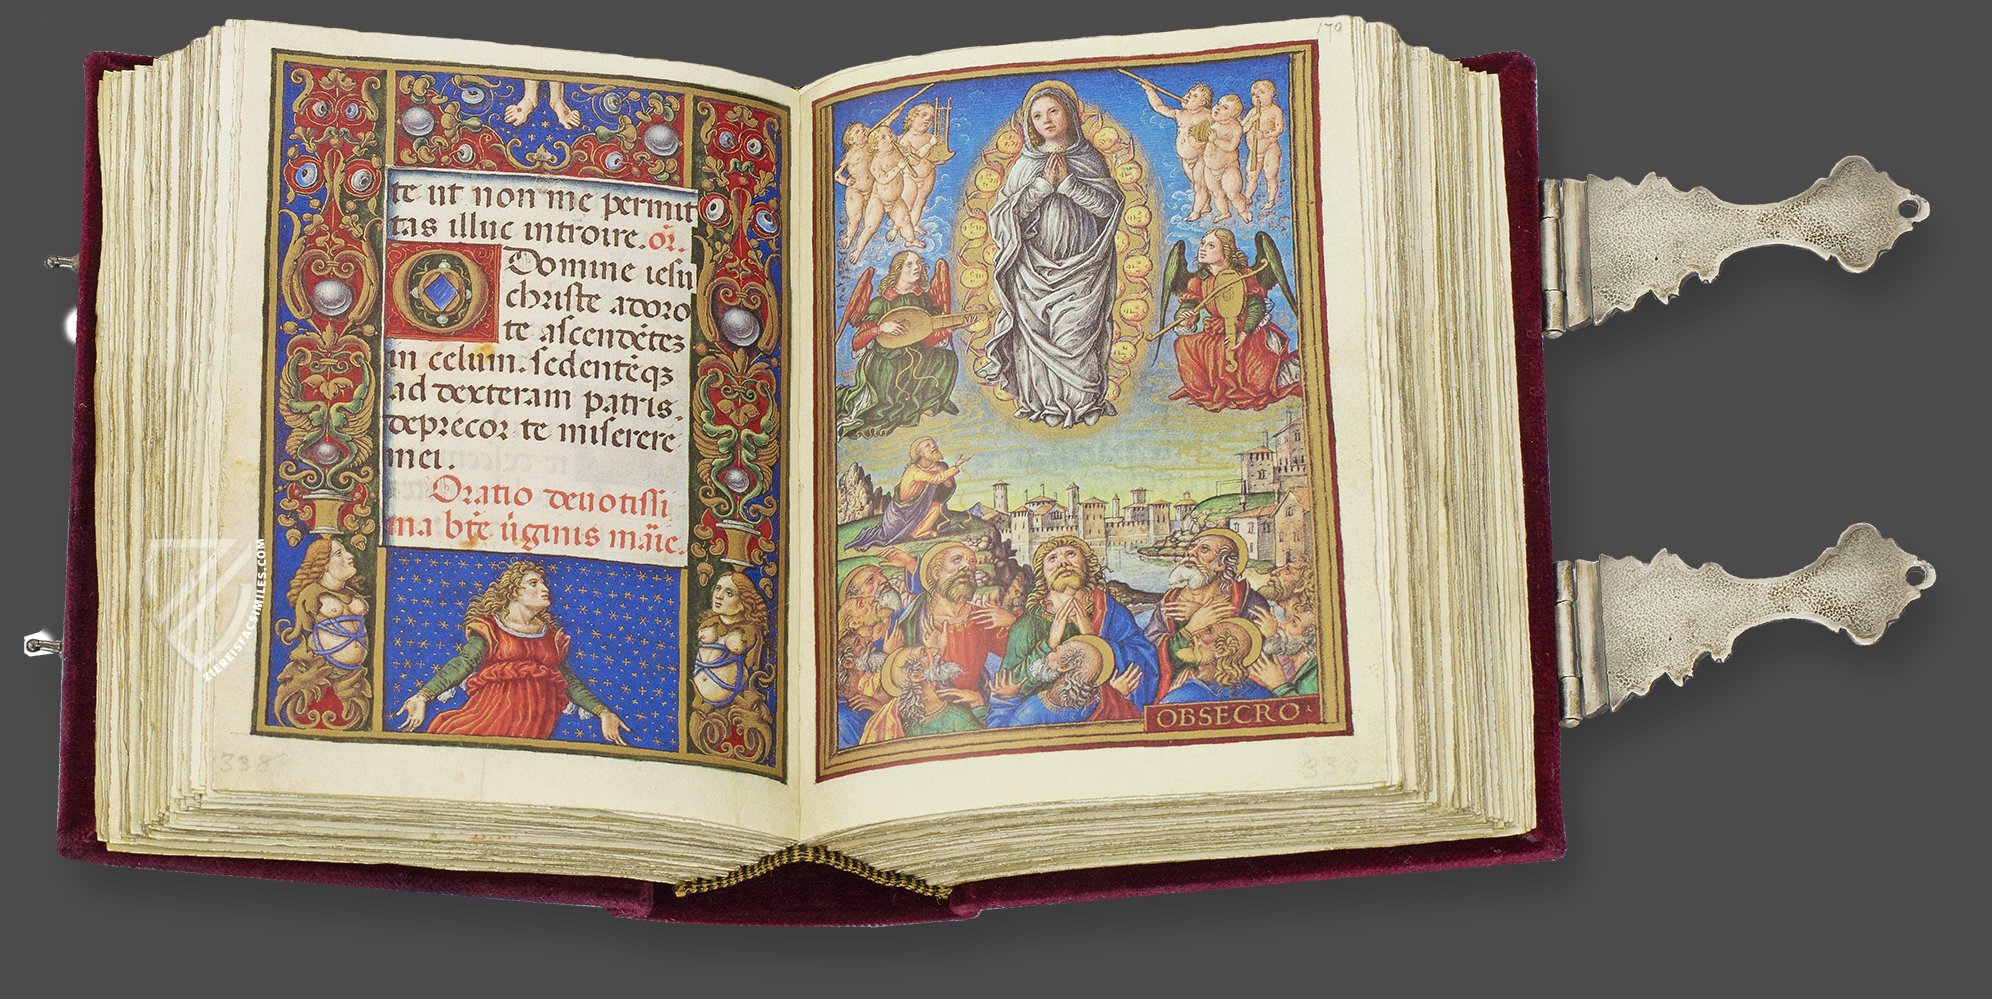 te ut non me permit
tas illuc introire. or̃.
Domine iesu
christe adoro
te ascendẽtez
in celum. sedentẽqz
ad dexteram patris.
deprecor te miserere
mei.
Oratio deuotissi
ma btẽ ũginis mãie.
338
170
OBSECRO
339
ZIEREISFACSIMILES.COM